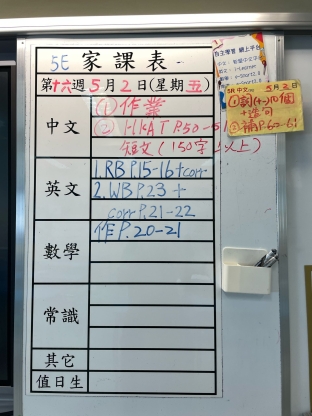 5E 家課表
第十六週5月2日(星期五)
中文
①作業
② P.50-51
短文(150字以上)
英文
1.RB P.15-16+corr
2.WB P.23 +
corr P.21-22
數學
作P.20-21
常識
其它
值日生
自主學習 網上平台
5R 中文 5月2日
+造句